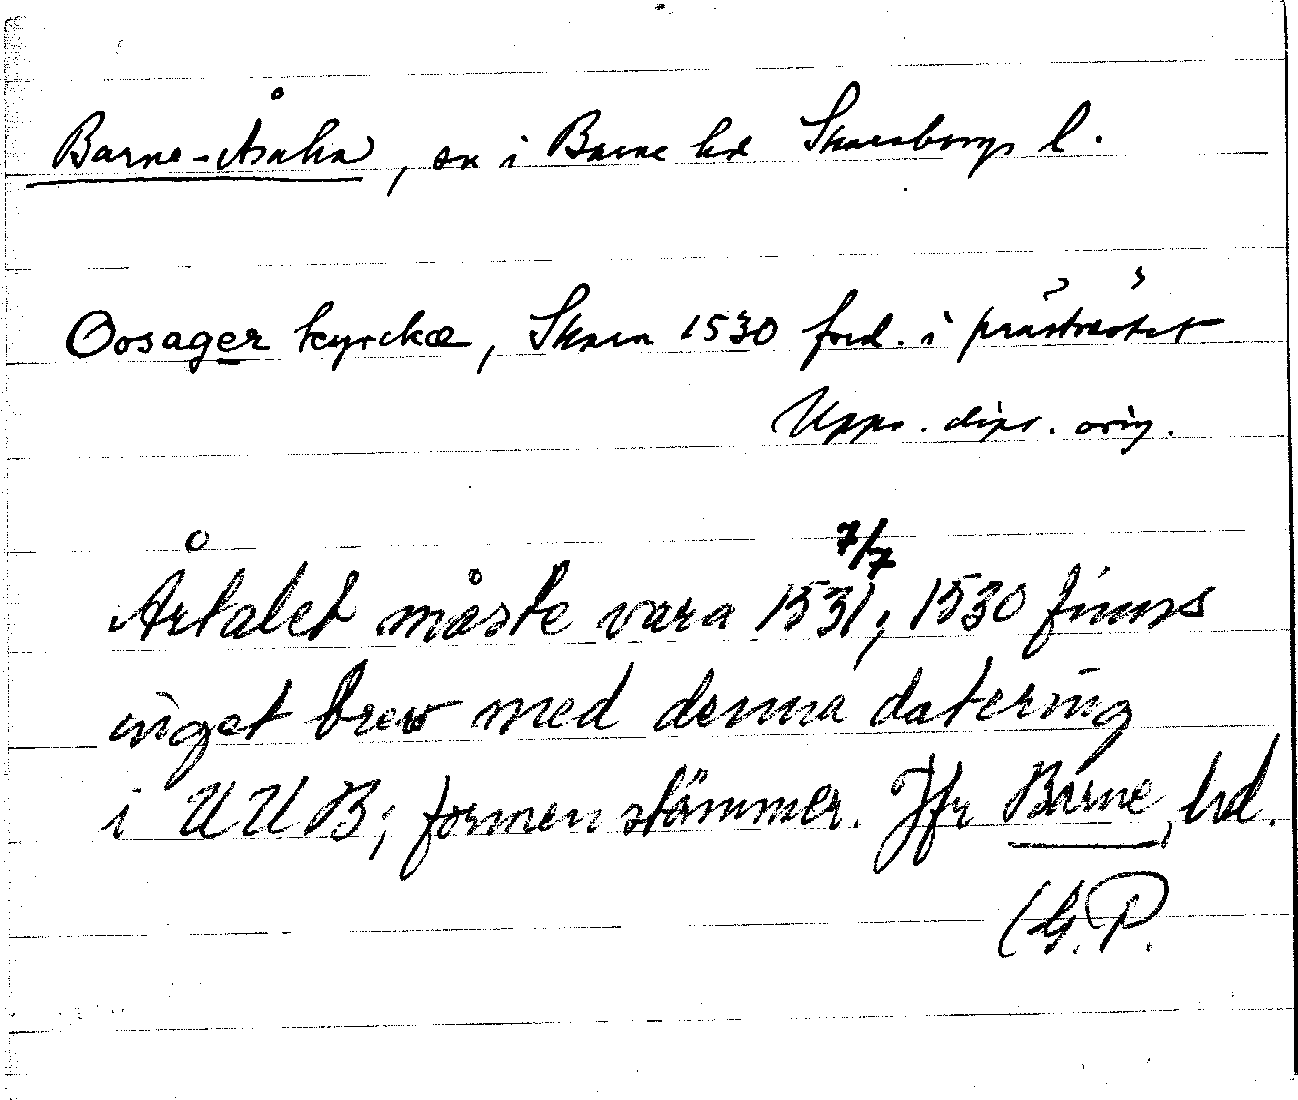 Barne-Åsaka, sn i Barne hd Skaraborgs l.
Oosager kyrckæ, Skara 1530 ford. i prästvästet
Upps. dipl. orig.
7/7
Årtalet måste vara 1531; 1530 finns
inget brev med denna datering
i UUB; formen stämmer. Jfr Barne, hd.
(G.P.